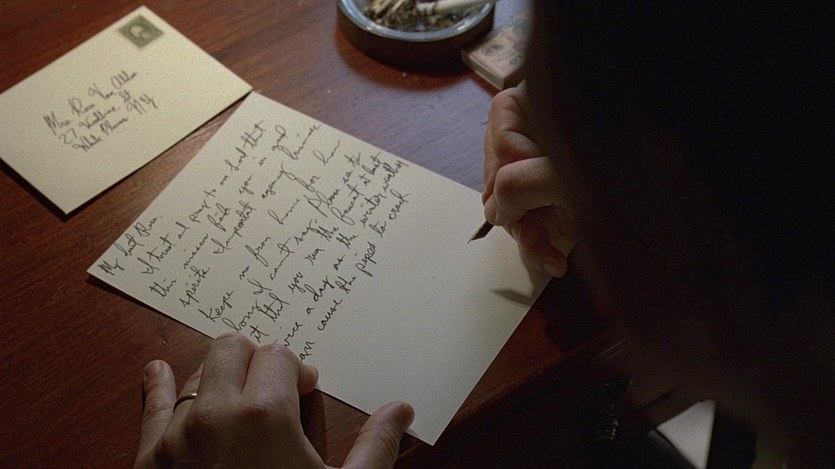 Mrs. Rose Van Alden
27 Street
White Plains N.Y.
My Rose.
I trust and pray to our Lord that
this missive finds you in good
spirits. Important agency business
keeps me from home, for how
long I cannot say. Please see to
it that you run the faucet at least
twice a day as the wintry weather
can cause the pipes to crack